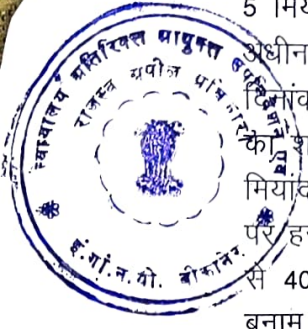 न्यायालय अतिरिक्त आयुक्त उपनिवेशन एवं
राजस्व अपील प्राधिकारी
इं.गां.न.यो. बीकानेर
5 मिय
अधीन
दिनांक
का
मियाद
पर
से 40
बनाम